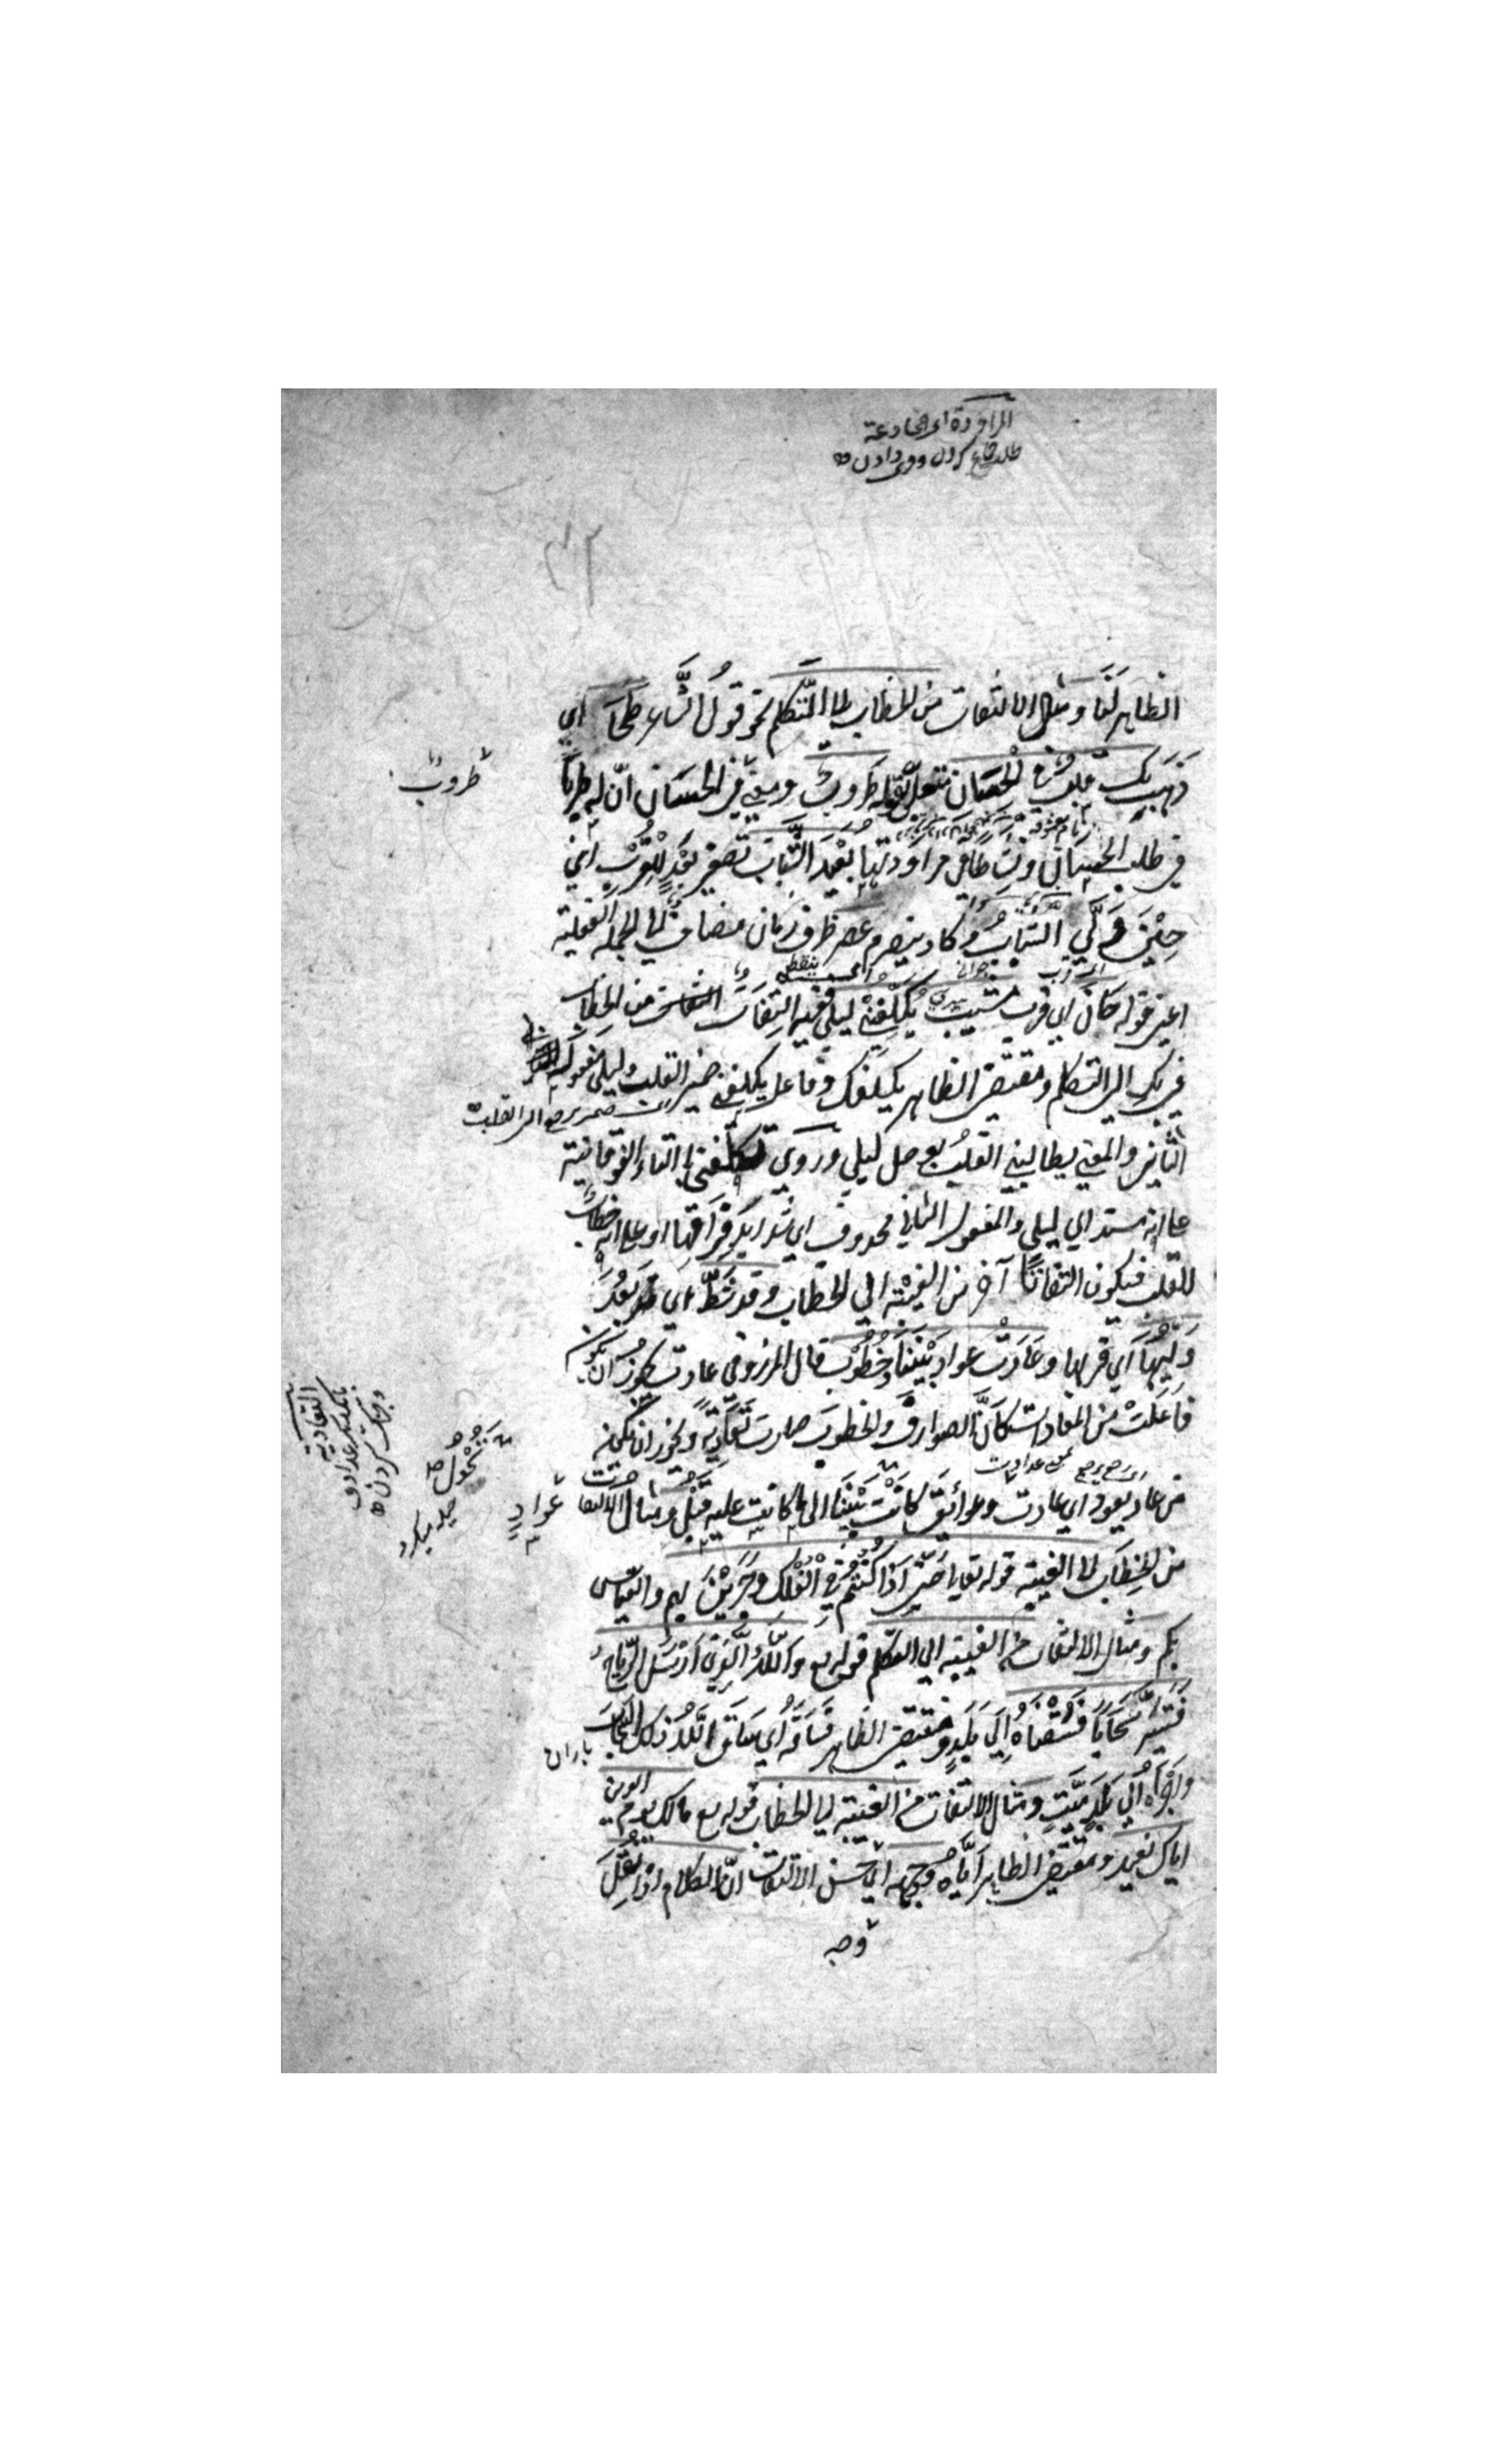 المراودة اى المخادعة
٣٢
الظاهر لنا ومثال الالتفات من الخطاب الى التكلم نحو قول الشاعر طحا اي
ذهب بك قلب في الحسان متعلق بقوله طروب ومعنى في الحسان ان له طربا
طروب
في طلب الحسان ونشاطا في مراودتها بعيد الشباب تصغير بعد للقرب اي
حين ولى الشباب وكاد ينصرم عصر ظرف زمان مضاف الى الجملة الفعلية
اعني قوله حان اي قرب مشيب يكلفني ليلى ففيه التفات من الخطاب
في بك الى التكلم ومقتضى الظاهر يكلفك وفاعل يكلفني ضمير القلب وليلى مفعوله
الثاني والمعنى يطالبني القلب بوصل ليلى وروي تكلفني بالتاء الفوقانية
على انه مسند الى ليلى والمفعول الثاني محذوف اي شدايد فراقها او على انه خطاب
للقلب فيكون التفاتا آخر من الغيبة الى الخطاب وقد شط اي بعد
وليها اي قربها وعادت عواد بيننا وخطوب قال المرزوقي عادت يجوز ان يكون
فاعلت من المعادات كان الصوارف والخطوب صارت تعاديه ويجوز ان يكون
من عاد يعود اي عادت وعوائق كانت بيننا الى ما كانت عليه قبل ومثال الالتفات
عواد
من الخطاب الى الغيبة قوله تعالى حتى اذا كنتم في الفلك وجرين بهم والقياس
بكم ومثال الالتفات من الغيبة الى التكلم قوله تع والله الذي ارسل الرياح
فتثير سحابا فسقناه الى بلد ومقتضى الظاهر فساقه اي ساق الله ذلك السحاب
باران
واجراه الى بلد ميت ومثال الالتفات من الغيبة الى الخطاب قوله تع مالك يوم الدين
اياك نعبد ومقتضى الظاهر اياه ووجهه اي حسن الالتفات ان الكلام اذا نقل
وجه